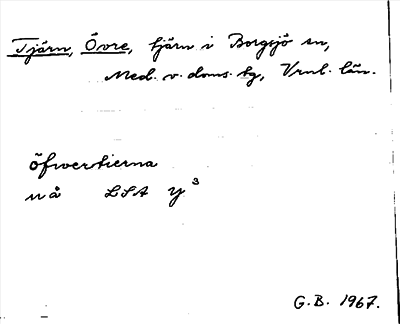 Tjärn, Övre, tjärn i Borgsjö sn,
Med. v. doms. tg, Vrnl. län.
öfwertierna
u å LSA Y³
G.B. 1967.